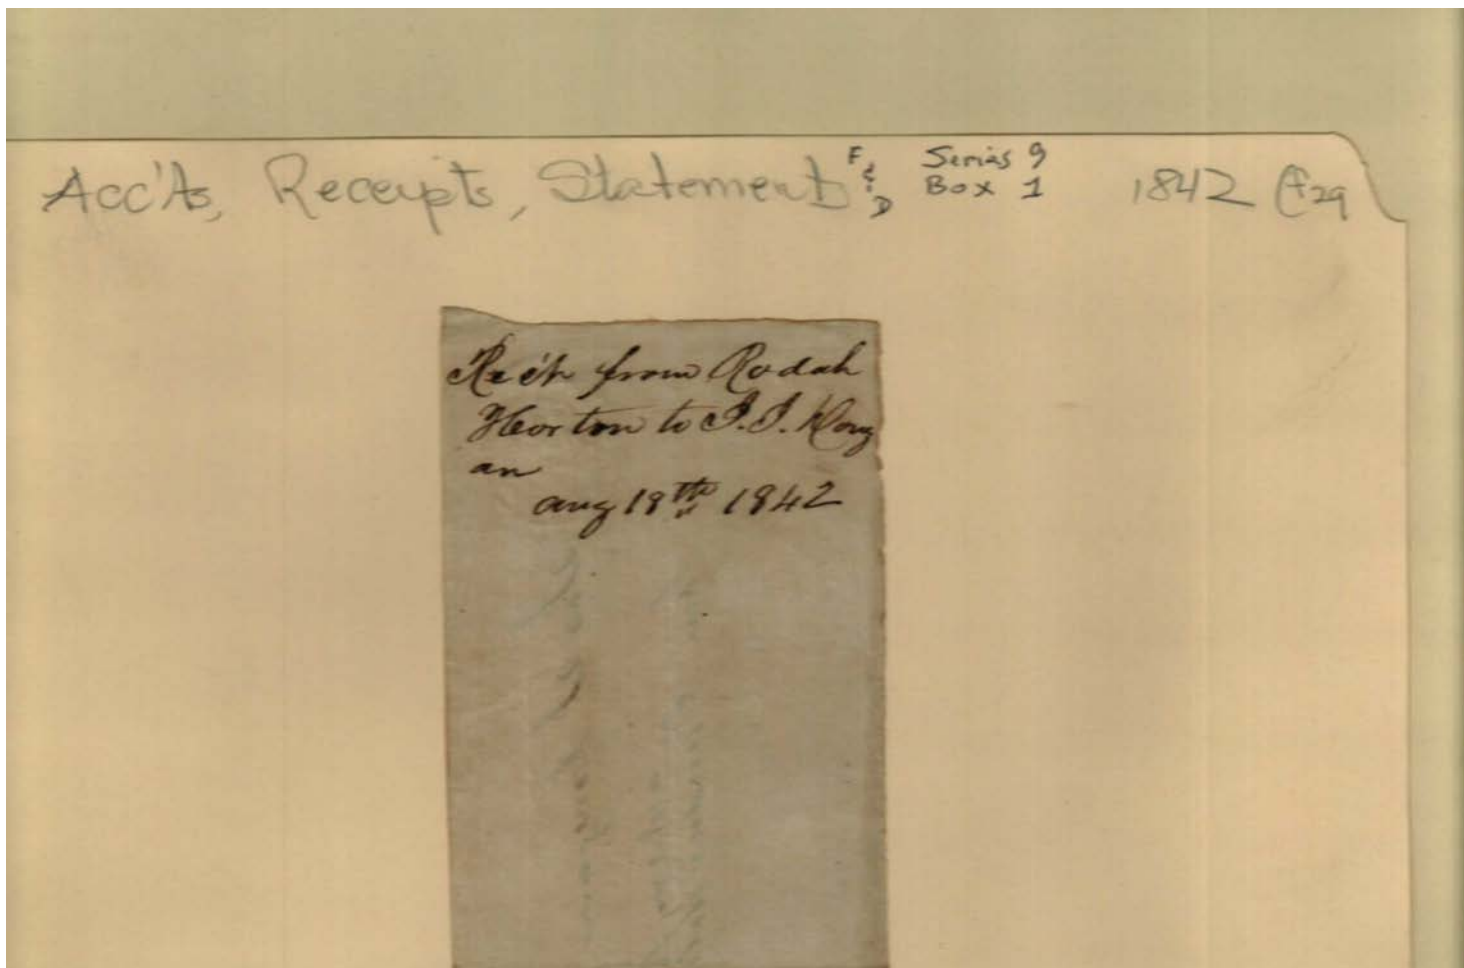 Acc'ts, Receipts, Statements F & D Series 9 Box 1 1842 f29
Rec't from Rodah
Horton to J.J. Dong
an
aug 18th 1842